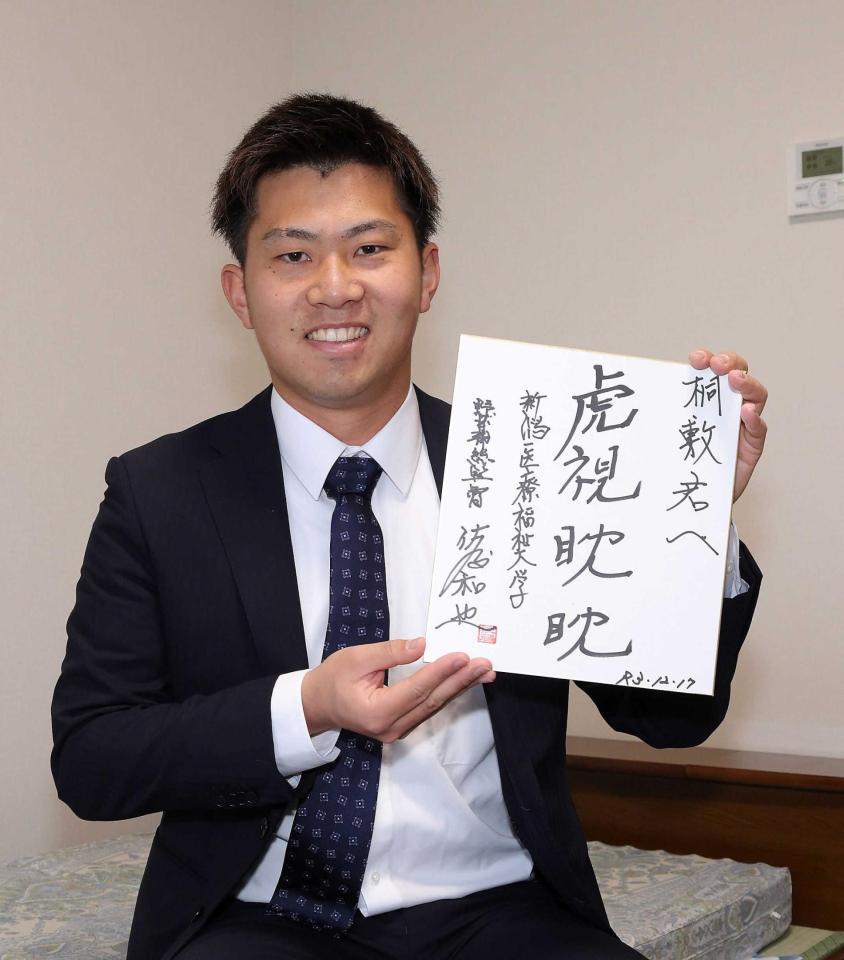 桐敷君へ
虎視眈眈
新潟医療福祉大学
硬式野球部総監督 佐藤和也
R3.12.17